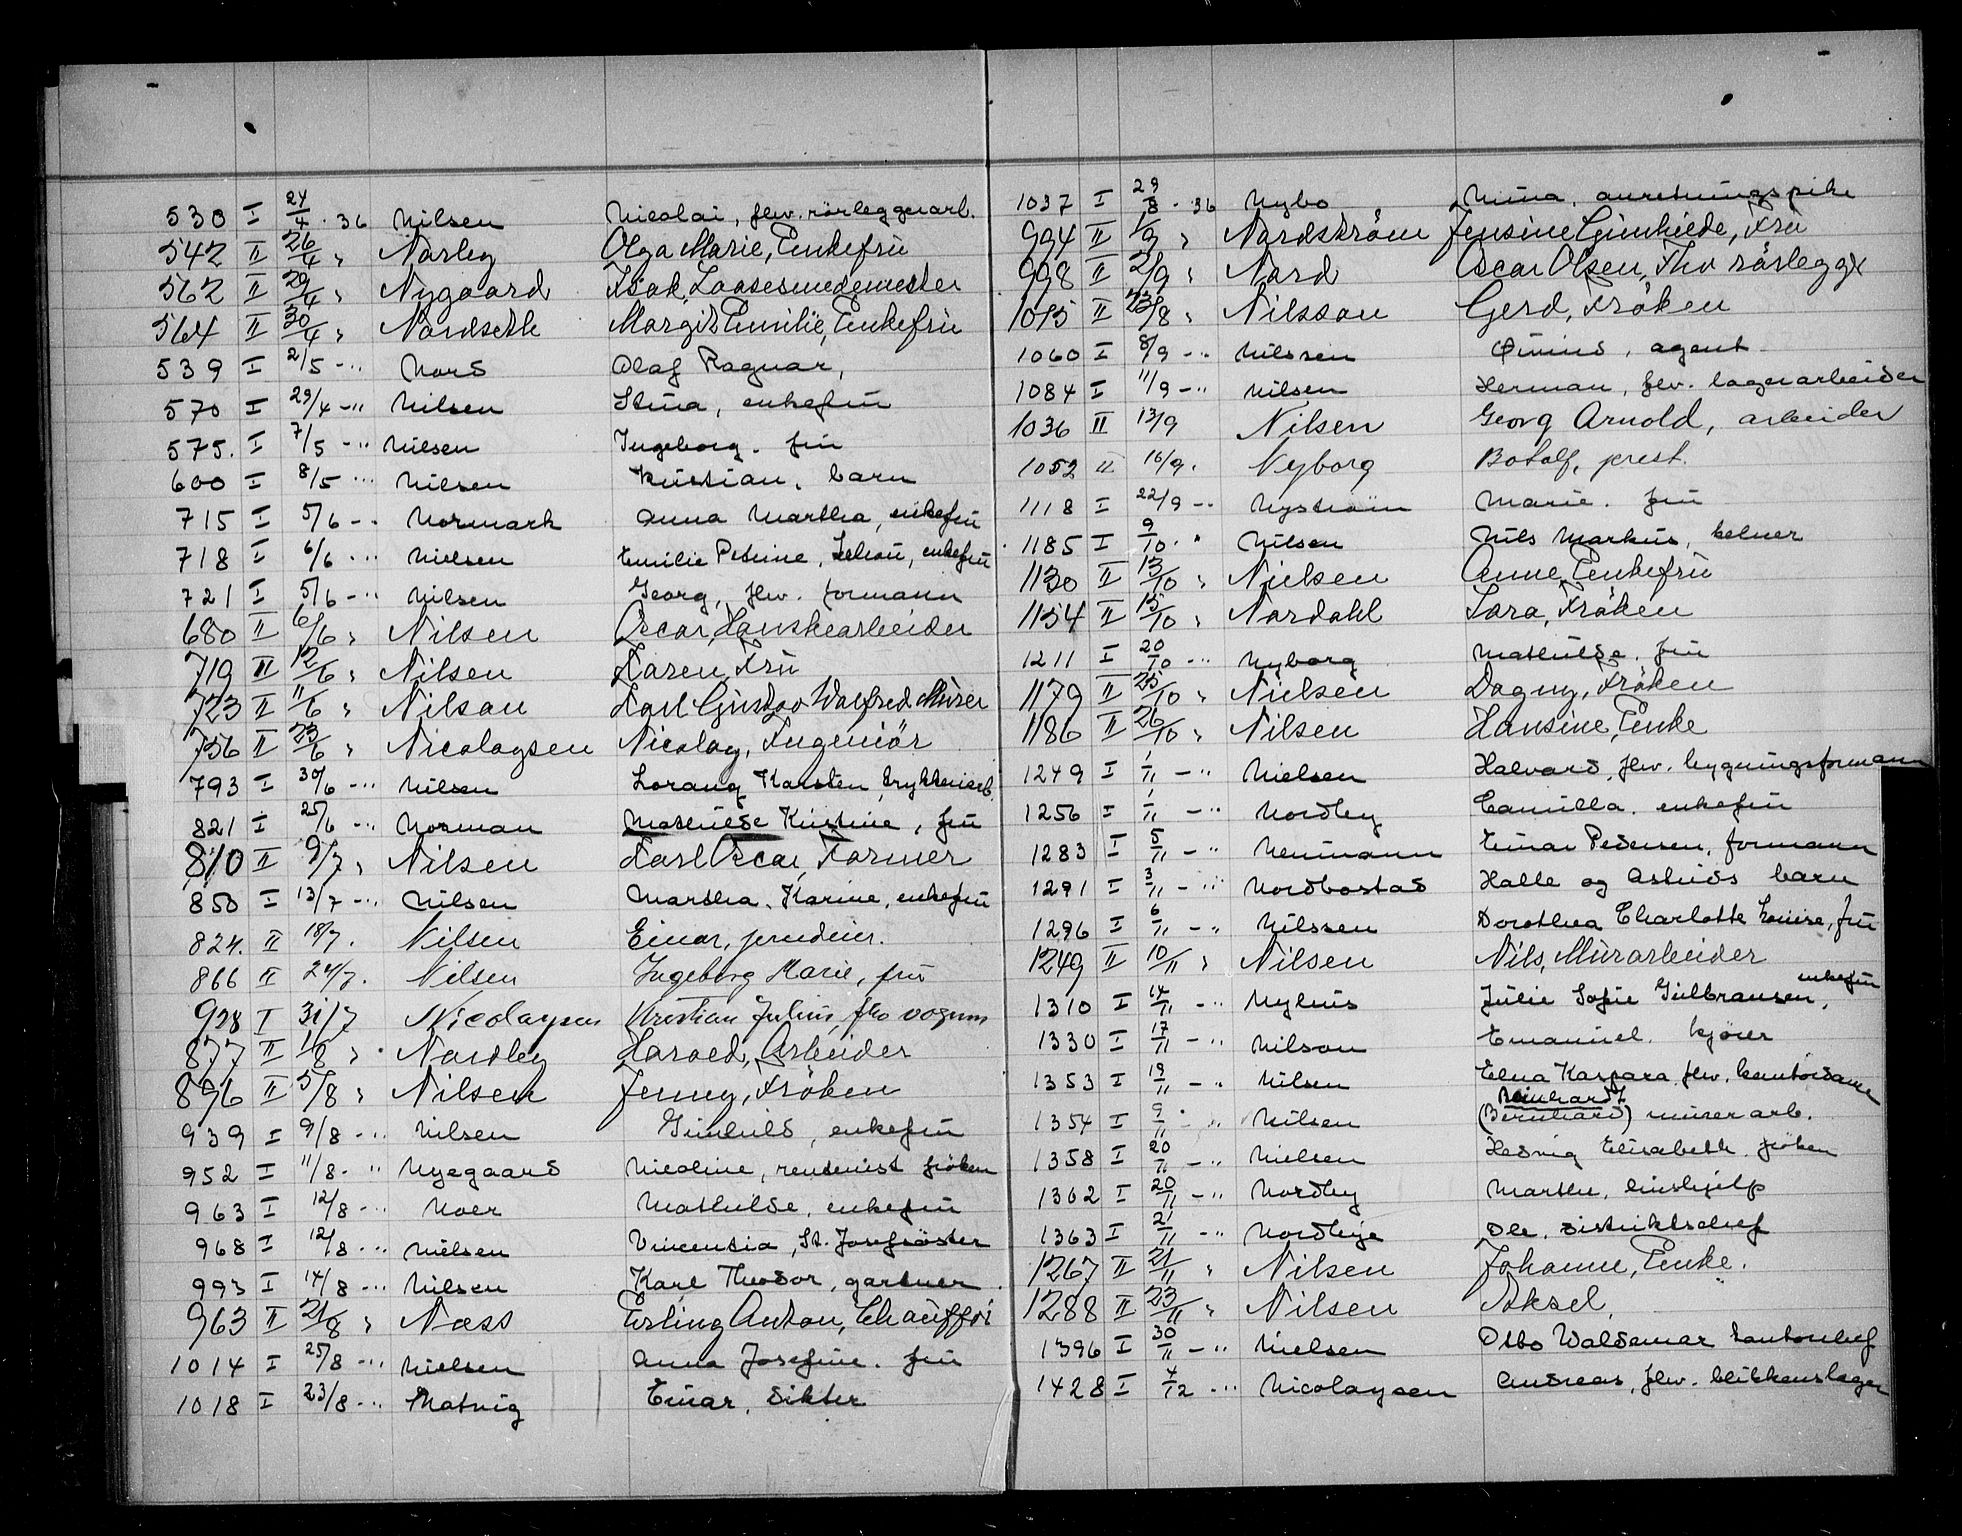 530 I 24/4 . 36 Nilsen Nicolai, fhv. rörleggerarb.
542 II 26/4 " Narley Olga Marie, Enkefru
562 II 29/4 " Nygaard Isak, Laasesmedmester
564 II 30/4 " Nordseth Margit Emilie, Enkefru
539 I 2/5 - " Nord Olaf Ragnar,
570 I 29/4 - " Nilsen Stina, enkefru
575. I 7/5 - " Nielsen Ingeborg. fru
600 I 8/5 - " Nielsen Kristian, barn
715 I 5/6 - " Normark Anna Martha, enkefru
718 I 6/6 - " Nielsen Emilie Petrine, enkefru
721 I 5/6 - " Nilsen Georg, fhv. formann
680 II 6/6 " Nilsen Oscar, Hanskearbeider
719 II 12/6 " Nilsen Karen, Fru
723 II 11/6 " Nilsan Karl Gustav Walfred Murer
756 II 23/6 " Nicolaysen Nicolay, Ingeniör
793 I 30/6 - " Nilsen Lorang Karsten, trykkeriarb.
821 I 25/6 - " Norman Mathilde Kristine, fru
810 II 9/7 " Nilsen Karl Oscar, Farmer
850 I 13/7 - " Nilsen Martha Karine, enkefru
824. II 18/7. Nilsen Einar,
866 II 24/7. Nilsen Ingeborg Marie, fru
928 I 31/7 Nicolaysen Kristian Julius, fhv vognm
877 II 1/8 " Nordley Harald, Arbeider
896 II 5/8 " Nilsen Jenny, Fröken
939 I 9/8 - " Nilsen Gunhild, enkefru
952 I 11/8 - " Nyegaard Nicoline, rentenist fröken
963 I 12/8 - " Noer Mathilde, enkefru
968 I 12/8 - " Nielsen Vincentia, St. Josefsöster
993 I 14/8 - " Nilsen Karl Theodor, gartner.
963 II 21/8 " Næss Erling Anton, Chauffør
1014 I 25/8 - " Nielsen Anna Josefine. fru
1018 I 23/8 - " Natvig Einar, dikter
1037 I 29/8 . 36 Nybo Nina, anretningspike
994 II 1/9 " Nordström Jensine Gunhilde, Fru
998 II 2/9 " Nord Oscar Olsen, Fhv rörlegger
1015 II 23/8 " Nilsson Gerd, Fröken
1060 I 8/9 - " Nilssen Øivind, agent
1084 I 11/9 - " Nilsen Herman, fhv. lagerarbeider
1036 II 13/9 Nilsen Georg Arnold, arbeider
1052 II 16/9. Nyborg Botolf, prest.
1118 I 22/9 - " Nyström Marie. fru
1185 I 9/10 . " Nilsen Nils Markus, kelner
1130 II 13/10 " Nielsen Anne, Enkefru
1154 II 15/10 " Nordahl Lara, Fröken
1211 I 20/10 - " Nyborg Mathilde. fru
1179 II 25/10 " Nielsen Dagny, Fröken
1186 II 26/10 " Nilsen Hansine, Enke
1249 I 1/11 - " Nielsen Halvard, fhv. bygningsformann
1256 I 1/11 - " Nordley Camilla. enkefru
1283 I 5/11 - " Neumann Einar Pedersen, formann
1291 I 3/11 - " Nordbostad Halle og Astrids barn
1296 I 6/11 - " Nilssen Dorothea Charlotte Louise, fru
1249 II 10/11 " Nilsen Nils, Murarbeider
1310 I 14/11 - " Nyhus Julie Sofie Gulbransen, enkefru
1330 I 17/11 - " Nilson Emanuel. kjörer
1353 I 19/11 - " Nilsen Elna Kaspara, fhv. kontordame
1354 I 9/11 . " Nilsen Reinhardt (Bernhard) murerarb.
1358 I 20/11 - " Nielsen Hedvig Elisabeth. fröken
1362 I 20/11 - " Nordby Marthe, hushjelp
1363 I 21/11 - " Nordlije Ole, distriktschef
1267 II 21/11 " Nilsen Johanne, Enke.
1288 II 23/11 " Nilsen Aksel,
1396 I 30/11 - " Nielsen Otto Waldemar kontorchef
1428 I 4/12 - " Nicolaysen Andreas, fhv. blikkenslager